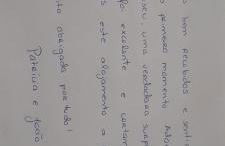 bem recebidos e senti
primeiro momento. Ado
seu, uma verdadeira surp
excelente e certam
este alojamento a
obrigada por tudo!
Patrícia e João